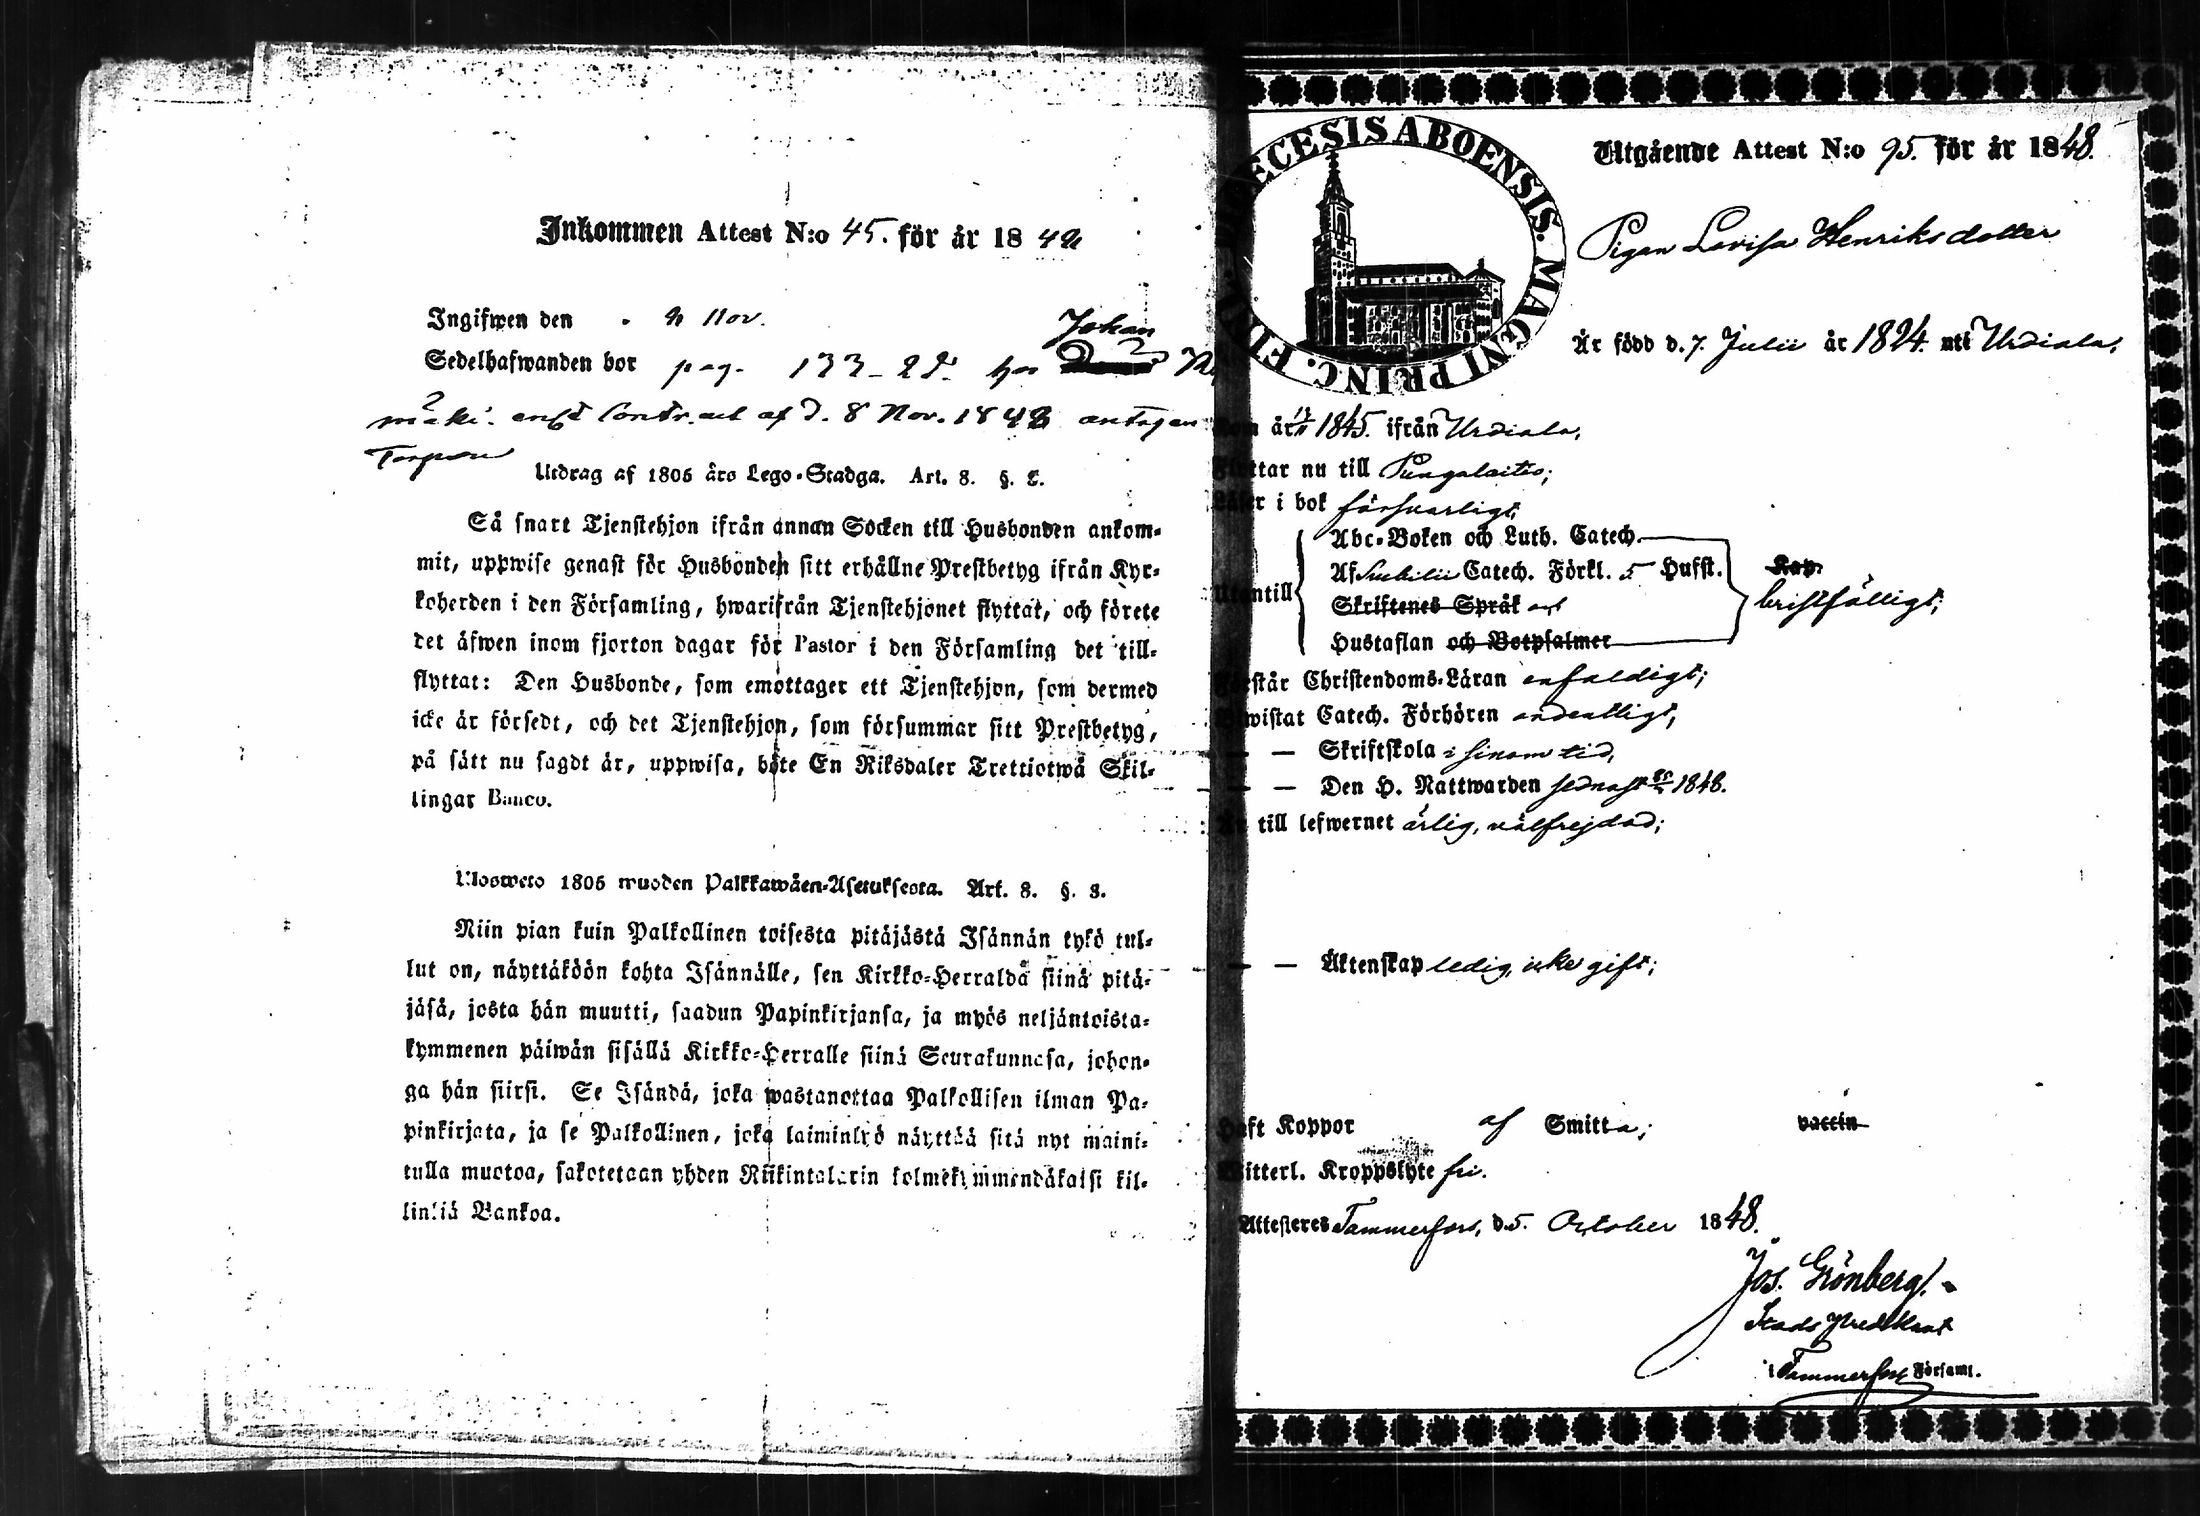 Inkommen Attest N:o 45. för år 1848
Ingifwen den 9 Nov.
Johan
Sedelhafwanden bor pag. 133 hos
mäki. enl Contract af d. 8 Nov. 1848 antagen
Utdrag af 1805 års Lego-Stadga. Art. 8. §. 8.
Så snart Tjenstehjon ifrån annan Socken till Husbonden ankom-
mit, uppwise genast för Husbonden sitt erhållne Prestbetyg ifrån Kyr-
koherden i den Församling, hwarifrån Tjenstehjonet flyttat, och förete
det äfwen inom fjorton dagar för Pastor i den Församling det till-
flyttat: Den Husbonde, som emottager ett Tjenstehjon, som dermed
icke är försedt, och det Tjenstehjon, som försummar sitt Prestbetyg,
på sätt nu sagdt är, uppwisa, böte En Riksdaler Trettiotwå Skil-
lingar Banco.
Ulosweto 1805 wuoden Palkkawäen-Asetuksesta. Art. 8. §. 8.
Niin pian kuin Palkollinen toisesta pitäjästä Isännän tykö tul-
lut on, näyttäköön kohta Isännälle, sen Kirkko-Herralda siinä pitä-
jäsä, josta hän muutti, saadun Papinkirjansa, ja myös neljäntoista-
kymmenen päiwän sisällä Kirkko-Herralle siinä Seurakunnasa, johon-
ga hän siirsi. Se Isändä, joka wastanottaa Palkollisen ilman Pa-
pinkirjata, ja se Palkollinen, joka laiminlyö näyttää sitä nyt maini-
tulla muotoa, sakotetaan yhden Riikintalarin kolmekymmendäkaksi kil-
linkiä Bankoa.
DIOECESIS ABOENSIS. MAGNI PRINC. FINL.
Utgående Attest N:o 95. för år 1848.
Pigan Lovisa Henriksdotter
Är född d. 7. Julii år 1824. uti Urdiala,
Kom år 1845. ifrån Urdiala,
Flyttar nu till Pungalaitio;
Läser i bok försvarligt,
Abc-Boken och Luth. Catech.
Af Svebilii Catech. Förkl. 5 Hufst. Kap.
Utantill bristfälligt;
Skriftenes Språk
Hustaflan och Botpsalmer
Förstår Christendoms-Läran enfaldigt;
Biwistat Catech. Förhören ordentligt,
— — Skriftskola i sinom tid,
— — Den H. Nattwarden sednast 1848.
Är till lefwernet ärlig, välfrejdad;
— — Äktenskap ledig, icke gift;
Haft Koppor af Smitta; vaccin
Witterl. Kroppslyte fri.
Attesteres Tammerfors, d. 5. October 1848.
Jos. Grönberg.
Stads Predikant
i Tammerfors Församl.